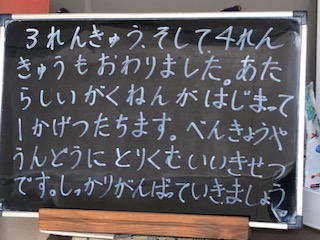 3れんきゅう、そして、4れん
きゅうもおわりました。あた
らしいがくねんがはじまって
1かげつたちます。べんきょうや
うんどうにとりくむいいきせつ
です。しっかりがんばっていきましょう